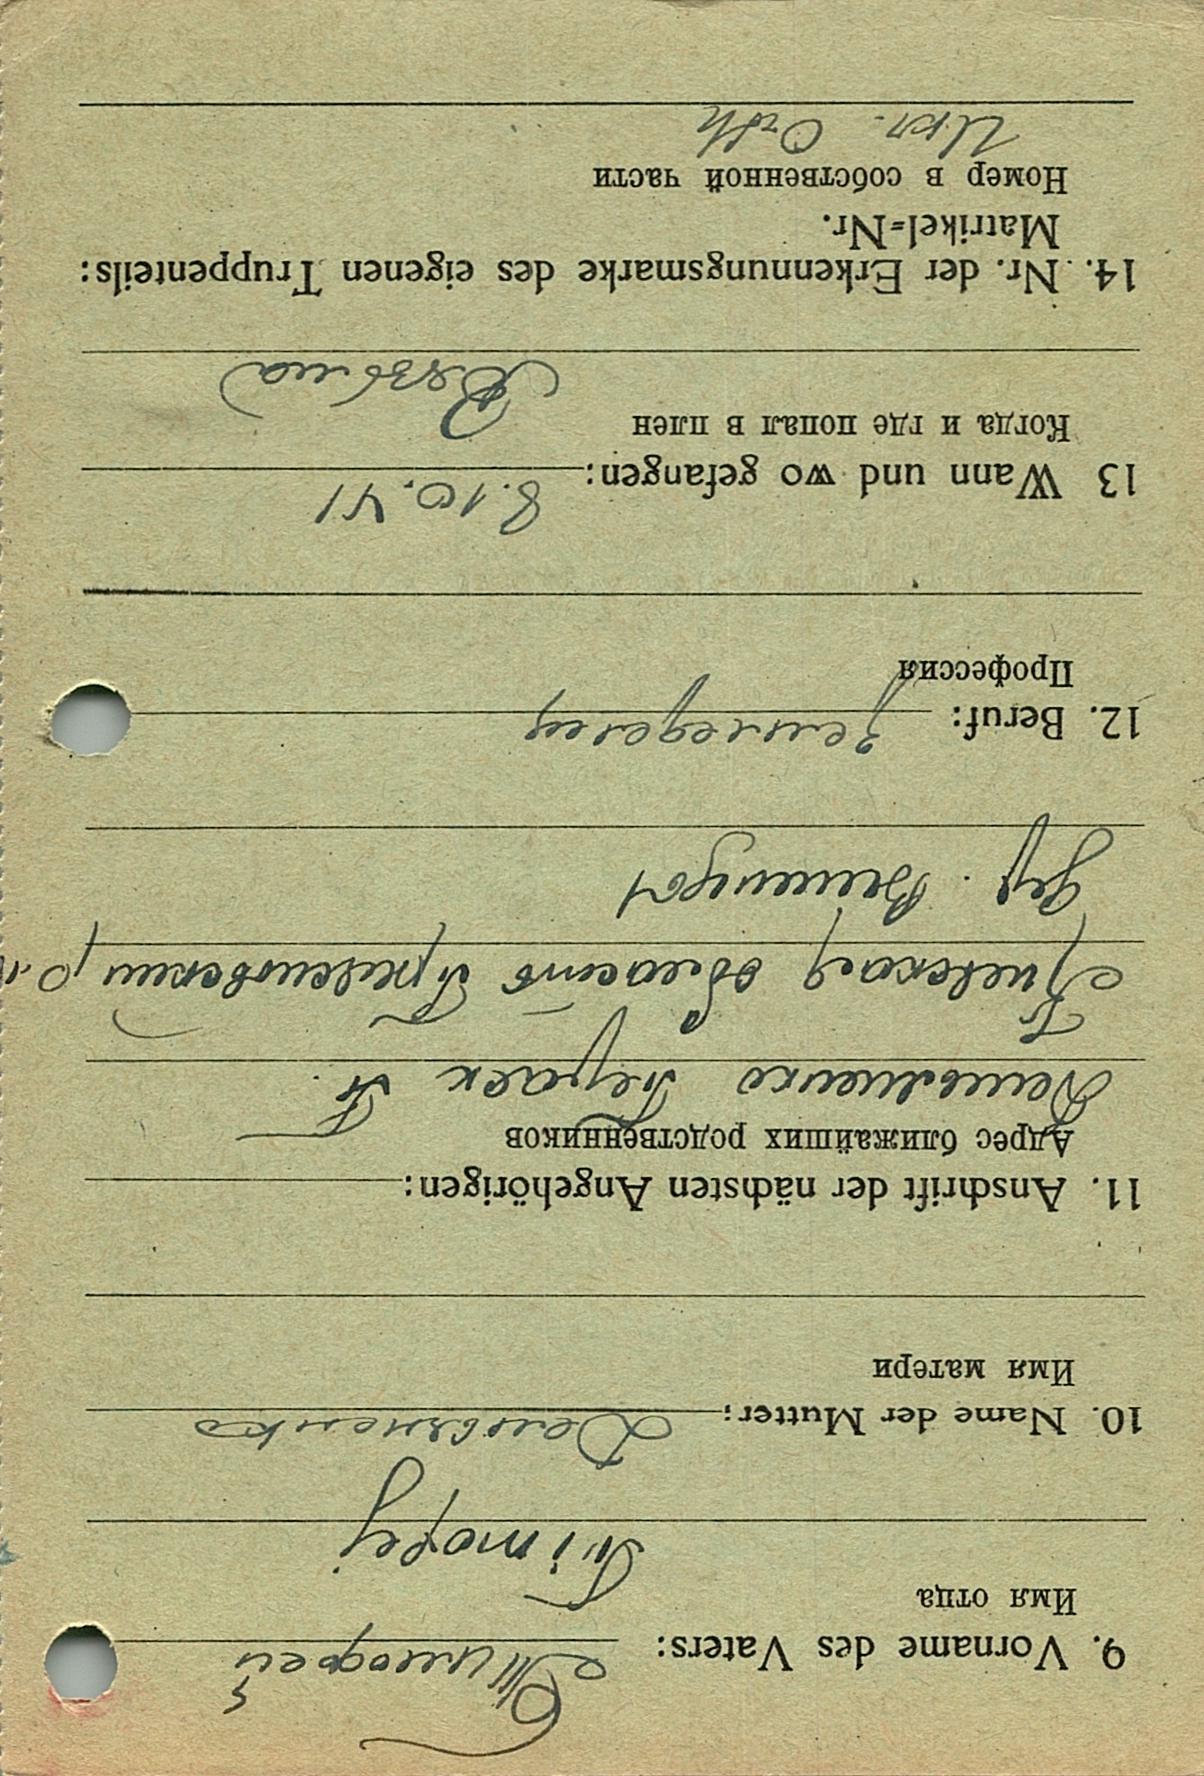 9. Vorname des Vaters: Тимофей
Имя отца
Timofej
10. Name der Mutter: Демьяненко
Имя матери
11. Anschrift der nächsten Angehörigen:
Адрес ближайших родственников
Демьяненко Т.
Киевская область
дер.
12. Beruf: земледелец
Профессия
13 Wann und wo gefangen: 8.10.41
Когда и где попал в плен
Вязьма
14. Nr. der Erkennungsmarke des eigenen Truppenteils:
Matrikel=Nr.
Номер в собственной части
Укр. Orth